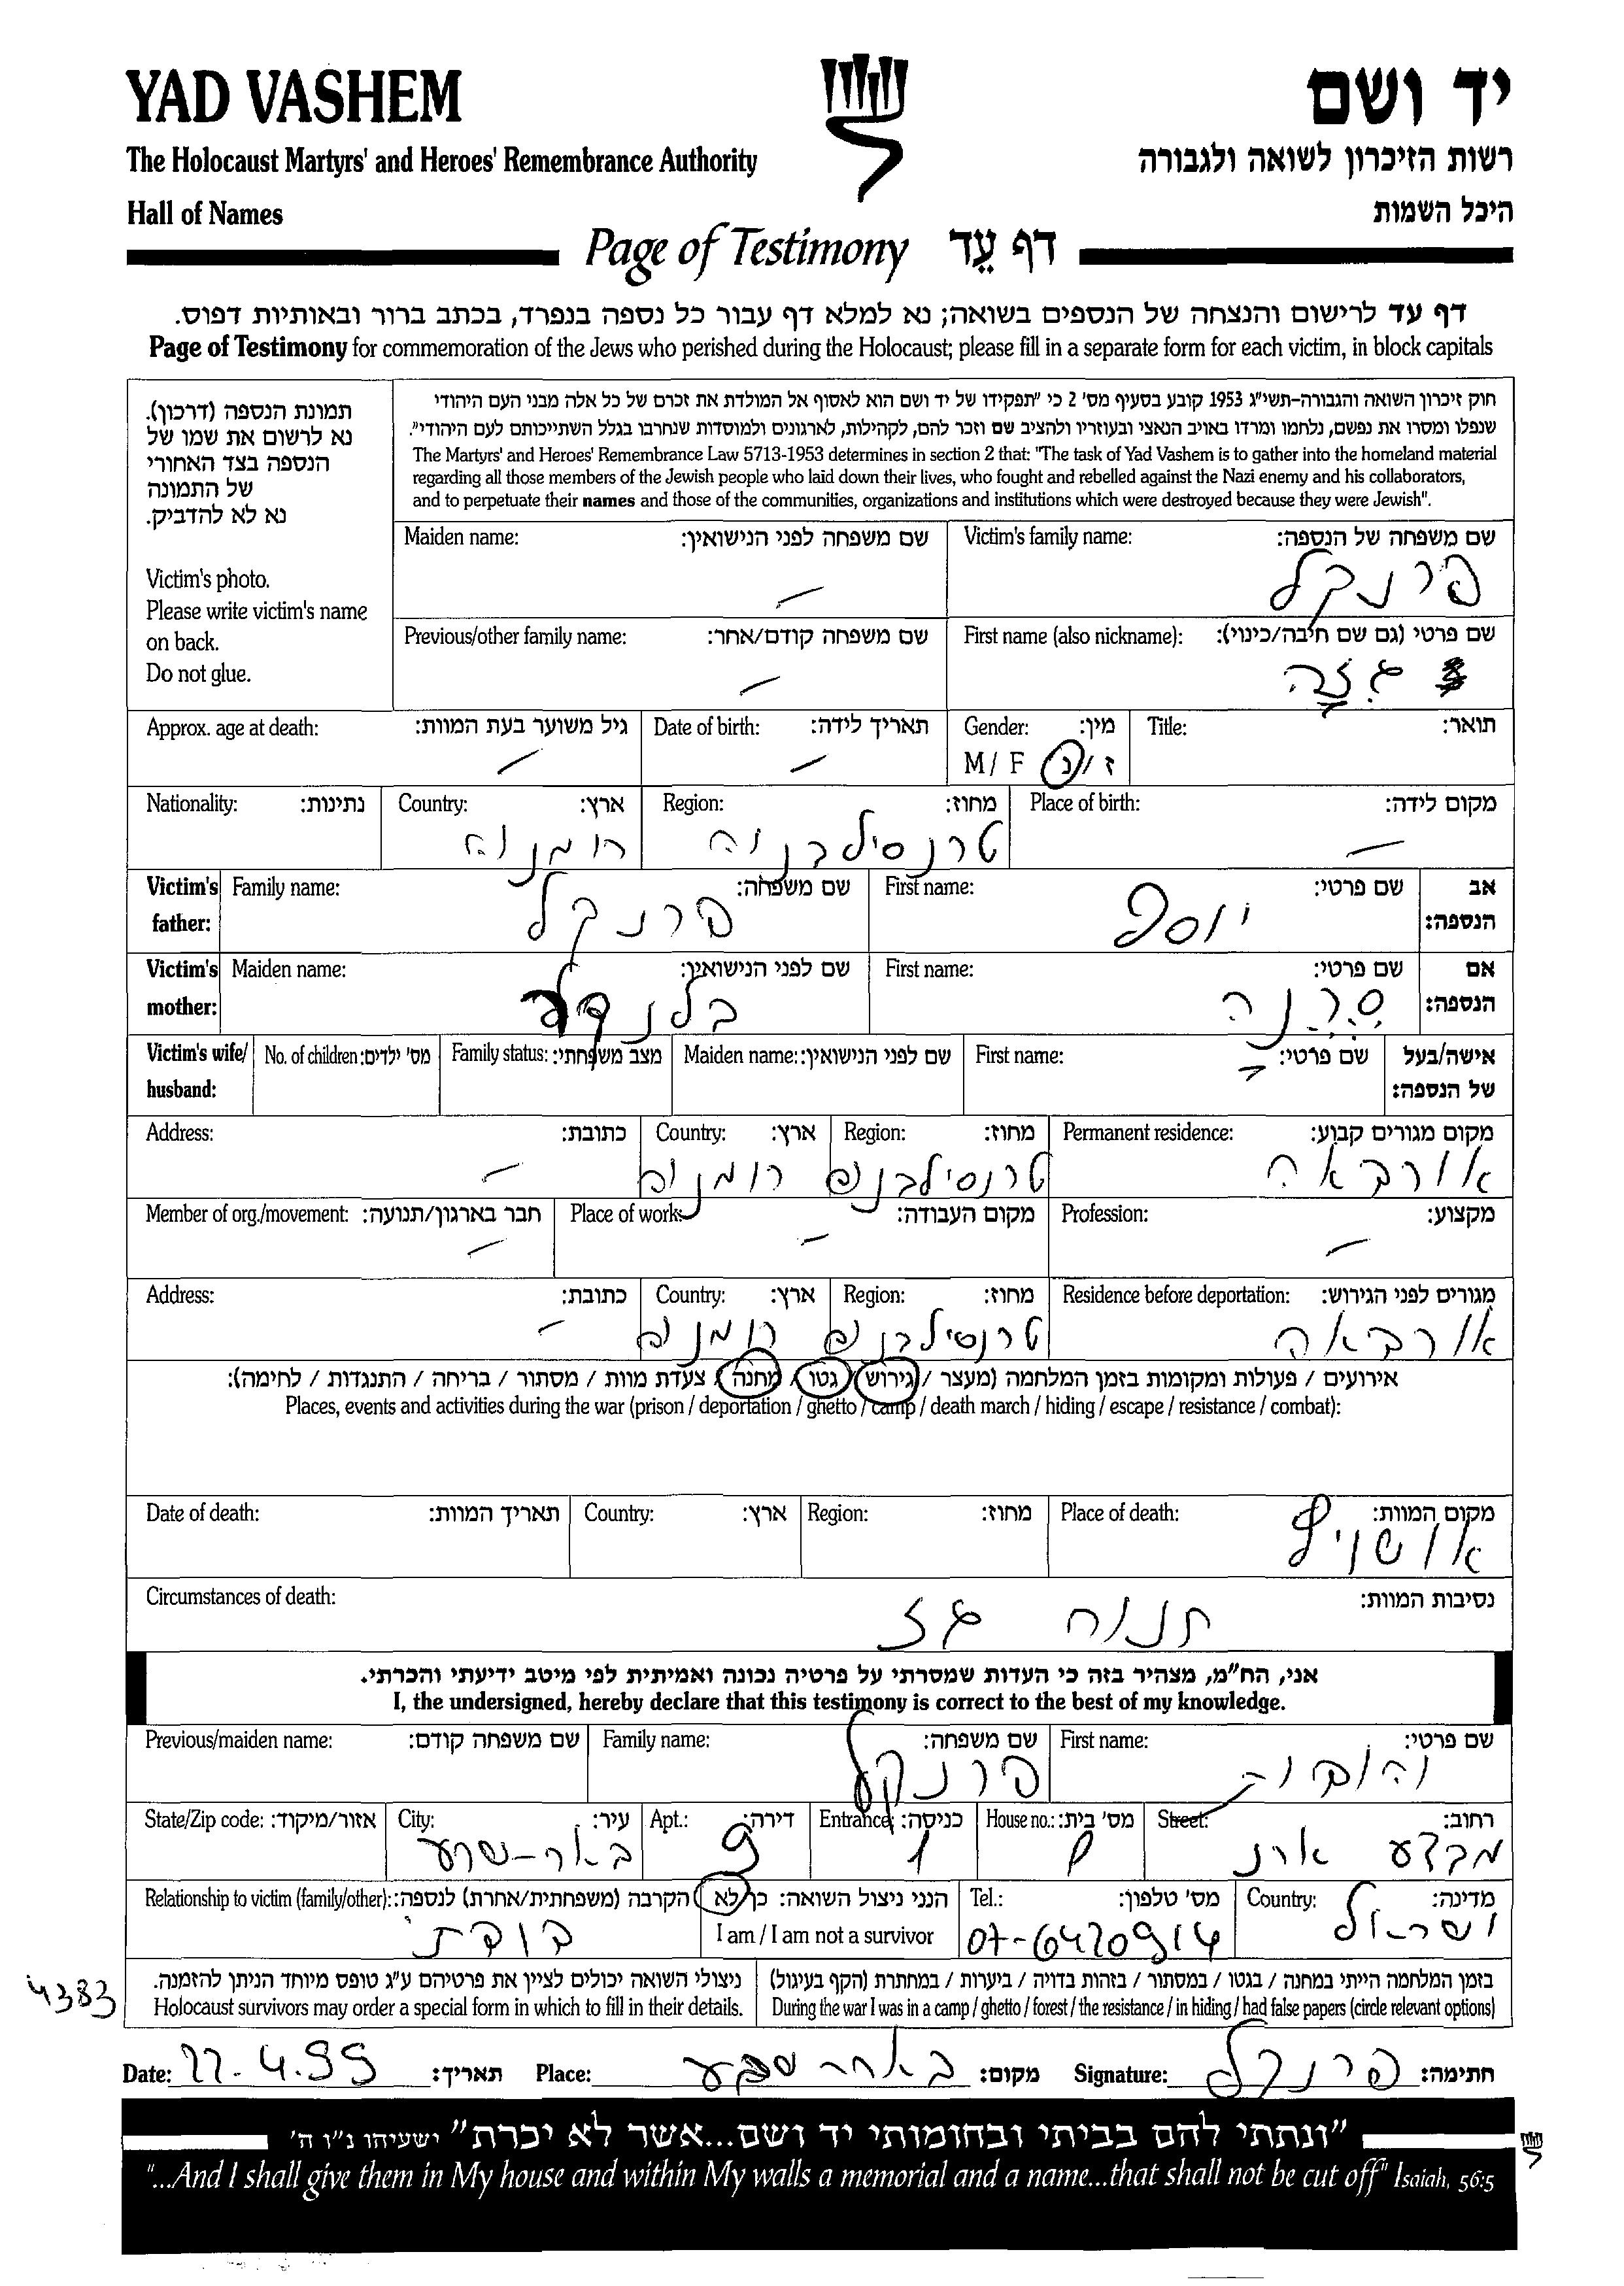 YAD VASHEM
יד ושם
The Holocaust Martyrs' and Heroes' Remembrance Authority
רשות הזיכרון לשואה ולגבורה
Hall of Names
היכל השמות
Page of Testimony דף עֵד
דף עד לרישום והנצחה של הנספים בשואה; נא למלא דף עבור כל נספה בנפרד, בכתב ברור ובאותיות דפוס.
Page of Testimony for commemoration of the Jews who perished during the Holocaust; please fill in a separate form for each victim, in block capitals
תמונת הנספה (דרכון).
נא לרשום את שמו של
הנספה בצד האחורי
של התמונה
נא לא להדביק.
Victim's photo.
Please write victim's name
on back.
Do not glue.
חוק זיכרון השואה והגבורה-תשי"ג 1953 קובע בסעיף מס' 2 כי "תפקידו של יד ושם הוא לאסוף אל המולדת את זכרם של כל אלה מבני העם היהודי
שנפלו ומסרו את נפשם, נלחמו ומרדו באויב הנאצי ובעוזריו ולהציב שם וזכר להם, לקהילות, לארגונים ולמוסדות שנחרבו בגלל השתייכותם לעם היהודי".
The Martyrs' and Heroes' Remembrance Law 5713-1953 determines in section 2 that: "The task of Yad Vashem is to gather into the homeland material
regarding all those members of the Jewish people who laid down their lives, who fought and rebelled against the Nazi enemy and his collaborators,
and to perpetuate their names and those of the communities, organizations and institutions which were destroyed because they were Jewish".
Victim's family name: שם משפחה של הנספה:
פרנקל
Maiden name: שם משפחה לפני הנישואין:
–
First name (also nickname): שם פרטי (גם שם חיבה/כינוי):
גיזה
Previous/other family name: שם משפחה קודם/אחר:
–
Title: תואר:
Gender: מין:
M / F ז / נ
Date of birth: תאריך לידה:
–
Approx. age at death: גיל משוער בעת המוות:
–
Place of birth: מקום לידה:
–
Region: מחוז:
טרנסילבניה
Country: ארץ:
רומניה
Nationality: נתינות:
Victim's father: אב הנספה:
First name: שם פרטי:
יוסף
Family name: שם משפחה:
פרנקל
Victim's mother: אם הנספה:
First name: שם פרטי:
Maiden name: שם לפני הנישואין:
Victim's wife/ husband: אישה/בעל של הנספה:
First name: שם פרטי:
–
Maiden name: שם לפני הנישואין:
Family status: מצב משפחתי:
No. of children: מס' ילדים:
Permanent residence: מקום מגורים קבוע:
אורבאה
Region: מחוז:
טרנסילבניה
Country: ארץ:
רומניה
Address: כתובת:
–
Profession: מקצוע:
–
Place of work: מקום העבודה:
–
Member of org./movement: חבר בארגון/תנועה:
–
Residence before deportation: מגורים לפני הגירוש:
אורבאה
Region: מחוז:
טרנסילבניה
Country: ארץ:
רומניה
Address: כתובת:
–
אירועים / פעולות ומקומות בזמן המלחמה (מעצר / גירוש / גטו / מחנה / צעדת מוות / מסתור / בריחה / התנגדות / לחימה):
Places, events and activities during the war (prison / deportation / ghetto / camp / death march / hiding / escape / resistance / combat):
Place of death: מקום המוות:
אושויץ
Region: מחוז:
Country: ארץ:
Date of death: תאריך המוות:
Circumstances of death: נסיבות המוות:
תנור גז
אני, הח"מ, מצהיר בזה כי העדות שמסרתי על פרטיה נכונה ואמיתית לפי מיטב ידיעתי והכרתי.
I, the undersigned, hereby declare that this testimony is correct to the best of my knowledge.
First name: שם פרטי:
Family name: שם משפחה:
פרנקל
Previous/maiden name: שם משפחה קודם:
Street: רחוב:
מבצע
House no.: מס' בית:
Entrance: כניסה:
1
Apt.: דירה:
9
City: עיר:
באר-שבע
State/Zip code: אזור/מיקוד:
Country: מדינה:
ישראל
Tel.: מס' טלפון:
07-6420914
הנני ניצול השואה: כן / לא
I am / I am not a survivor
Relationship to victim (family/other): הקרבה (משפחתית/אחרת) לנספה:
בזמן המלחמה הייתי במחנה / בגטו / במסתור / בזהות בדויה / ביערות / במחתרת (הקף בעיגול)
During the war I was in a camp / ghetto / forest / the resistance / in hiding / had false papers (circle relevant options)
ניצולי השואה יכולים לציין את פרטיהם ע"ג טופס מיוחד הניתן להזמנה.
Holocaust survivors may order a special form in which to fill in their details.
4383
Date: 22.4.99 תאריך: Place: באר שבע מקום: Signature: פרנקל חתימה:
"ונתתי להם בביתי ובחומותי יד ושם...אשר לא יכרת" ישעיהו נ"ו ה'
"...And I shall give them in My house and within My walls a memorial and a name...that shall not be cut off" Isaiah, 56:5